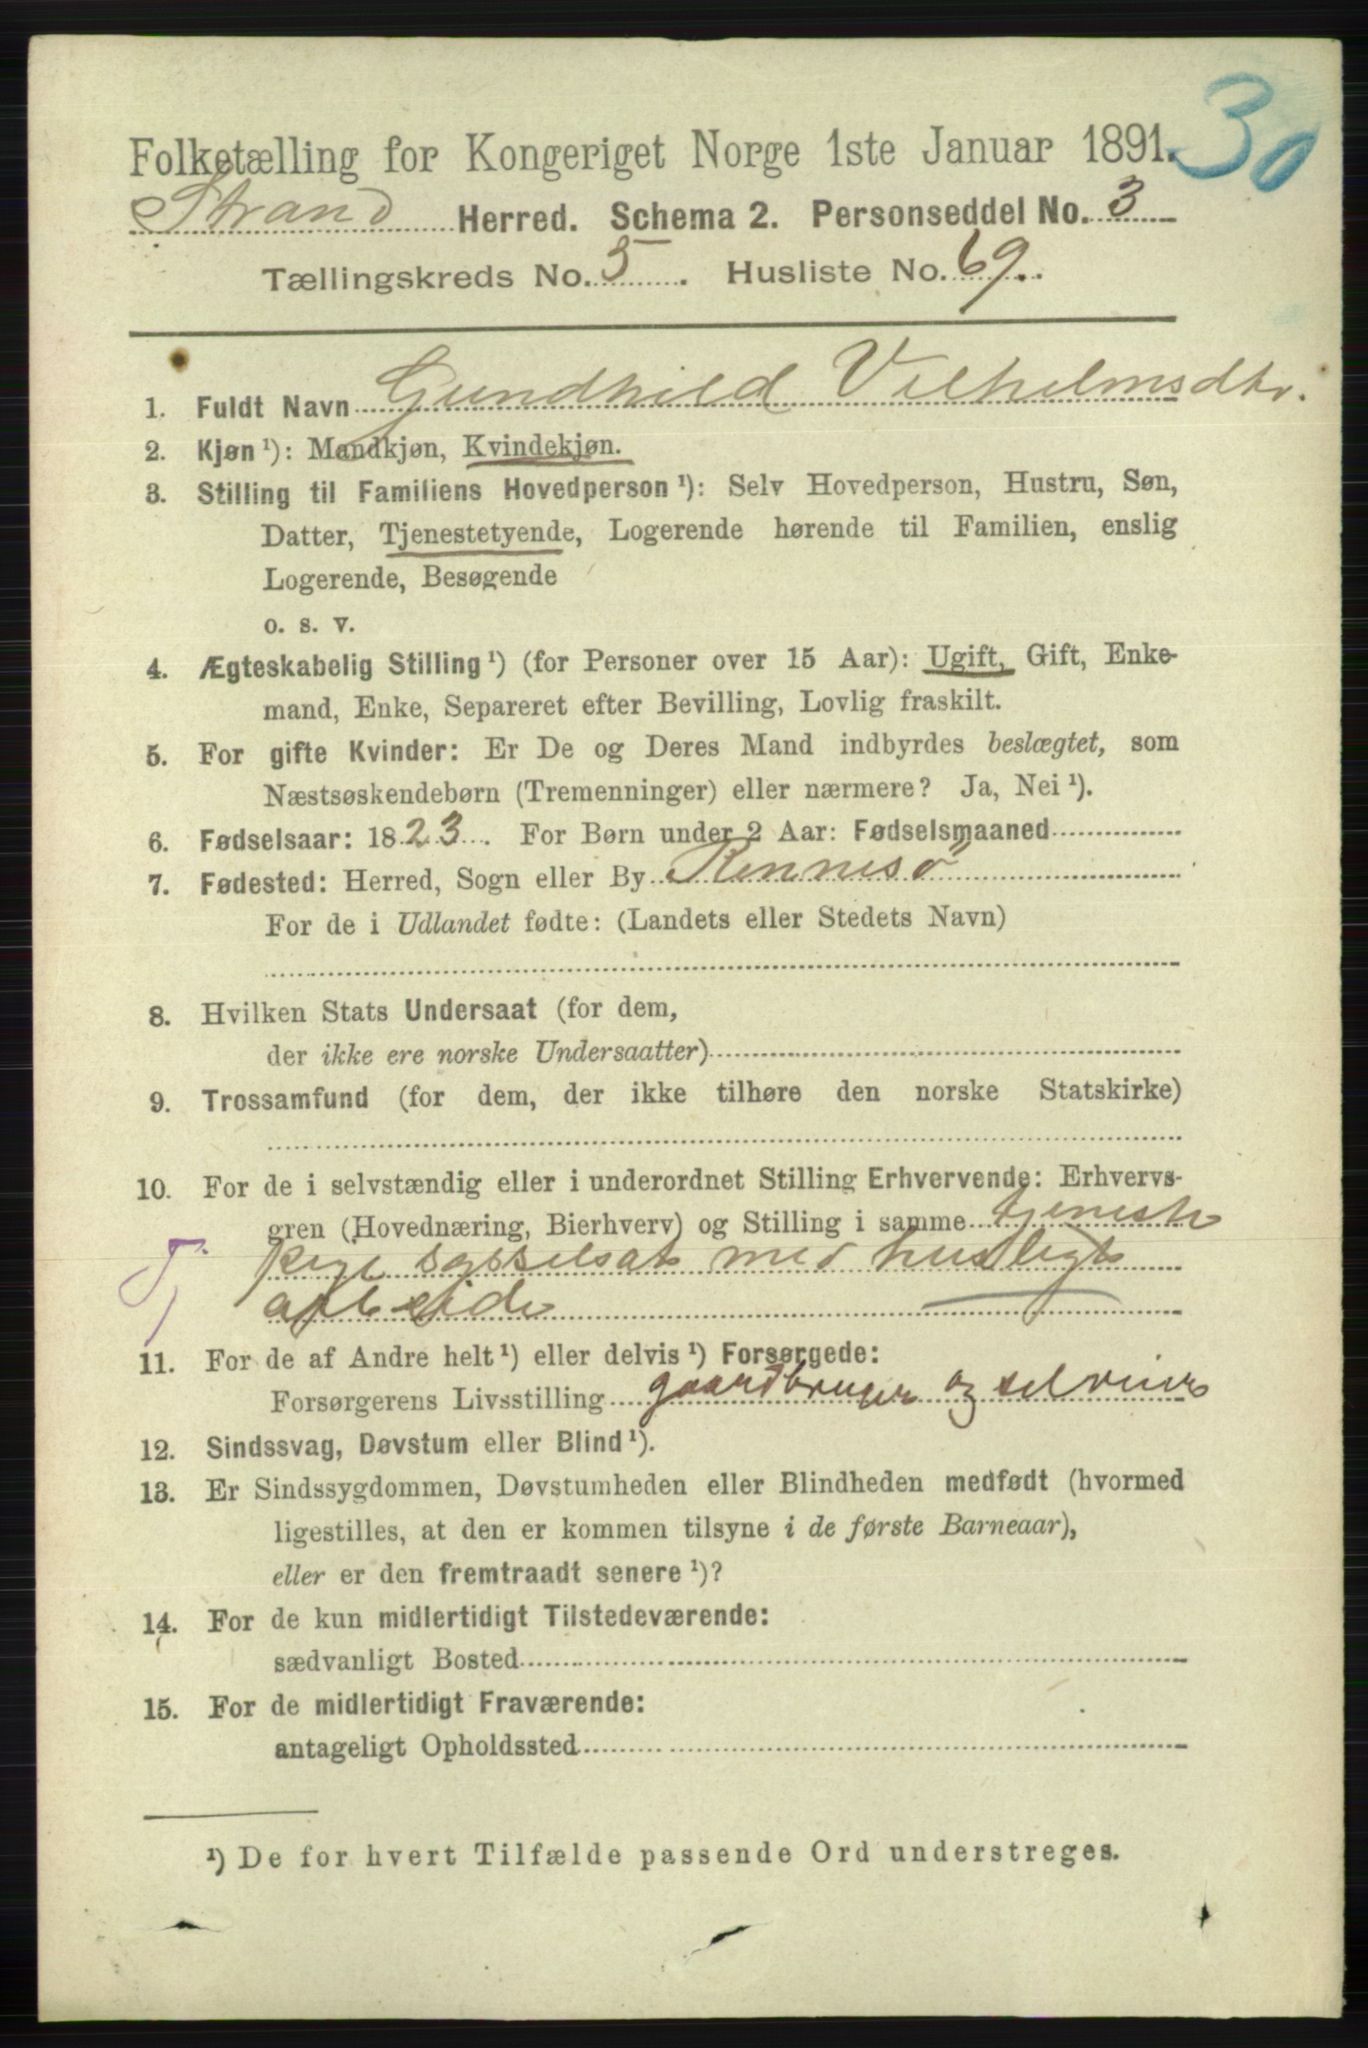 30
Folketælling for Kongeriget Norge 1ste Januar 1891.
Strand Herred. Schema 2. Personseddel No. 3
Tællingskreds No. 5. Husliste No. 69.
1. Fuldt Navn Gundhild Vilhelmsdtr.
2. Kjøn ¹): Mandkjøn, Kvindekjøn.
3. Stilling til Familiens Hovedperson ¹): Selv Hovedperson, Hustru, Søn,
Datter, Tjenestetyende, Logerende hørende til Familien, enslig
Logerende, Besøgende
o. s. v.
4. Ægteskabelig Stilling ¹) (for Personer over 15 Aar): Ugift, Gift, Enke-
mand, Enke, Separeret efter Bevilling, Lovlig fraskilt.
5. For gifte Kvinder: Er De og Deres Mand indbyrdes beslægtet, som
Næstsøskendebørn (Tremenninger) eller nærmere? Ja, Nei ¹).
6. Fødselsaar: 1823. For Børn under 2 Aar: Fødselsmaaned
7. Fødested: Herred, Sogn eller By Rennesø
For de i Udlandet fødte: (Landets eller Stedets Navn)
8. Hvilken Stats Undersaat (for dem,
der ikke ere norske Undersaatter)
9. Trossamfund (for dem, der ikke tilhøre den norske Statskirke)
10. For de i selvstændig eller i underordnet Stilling Erhvervende: Erhvervs-
gren (Hovednæring, Bierhverv) og Stilling i samme tjeneste
pige sysselsat med husligt
arbeide
11. For de af Andre helt ¹) eller delvis ¹) Forsørgede:
Forsørgerens Livsstilling gaardbruger og selveier
12. Sindssvag, Døvstum eller Blind ¹).
13. Er Sindssygdommen, Døvstumheden eller Blindheden medfødt (hvormed
ligestilles, at den er kommen tilsyne i de første Barneaar),
eller er den fremtraadt senere ¹)?
14. For de kun midlertidigt Tilstedeværende:
sædvanligt Bosted
15. For de midlertidigt Fraværende:
antageligt Opholdssted
¹) De for hvert Tilfælde passende Ord understreges.